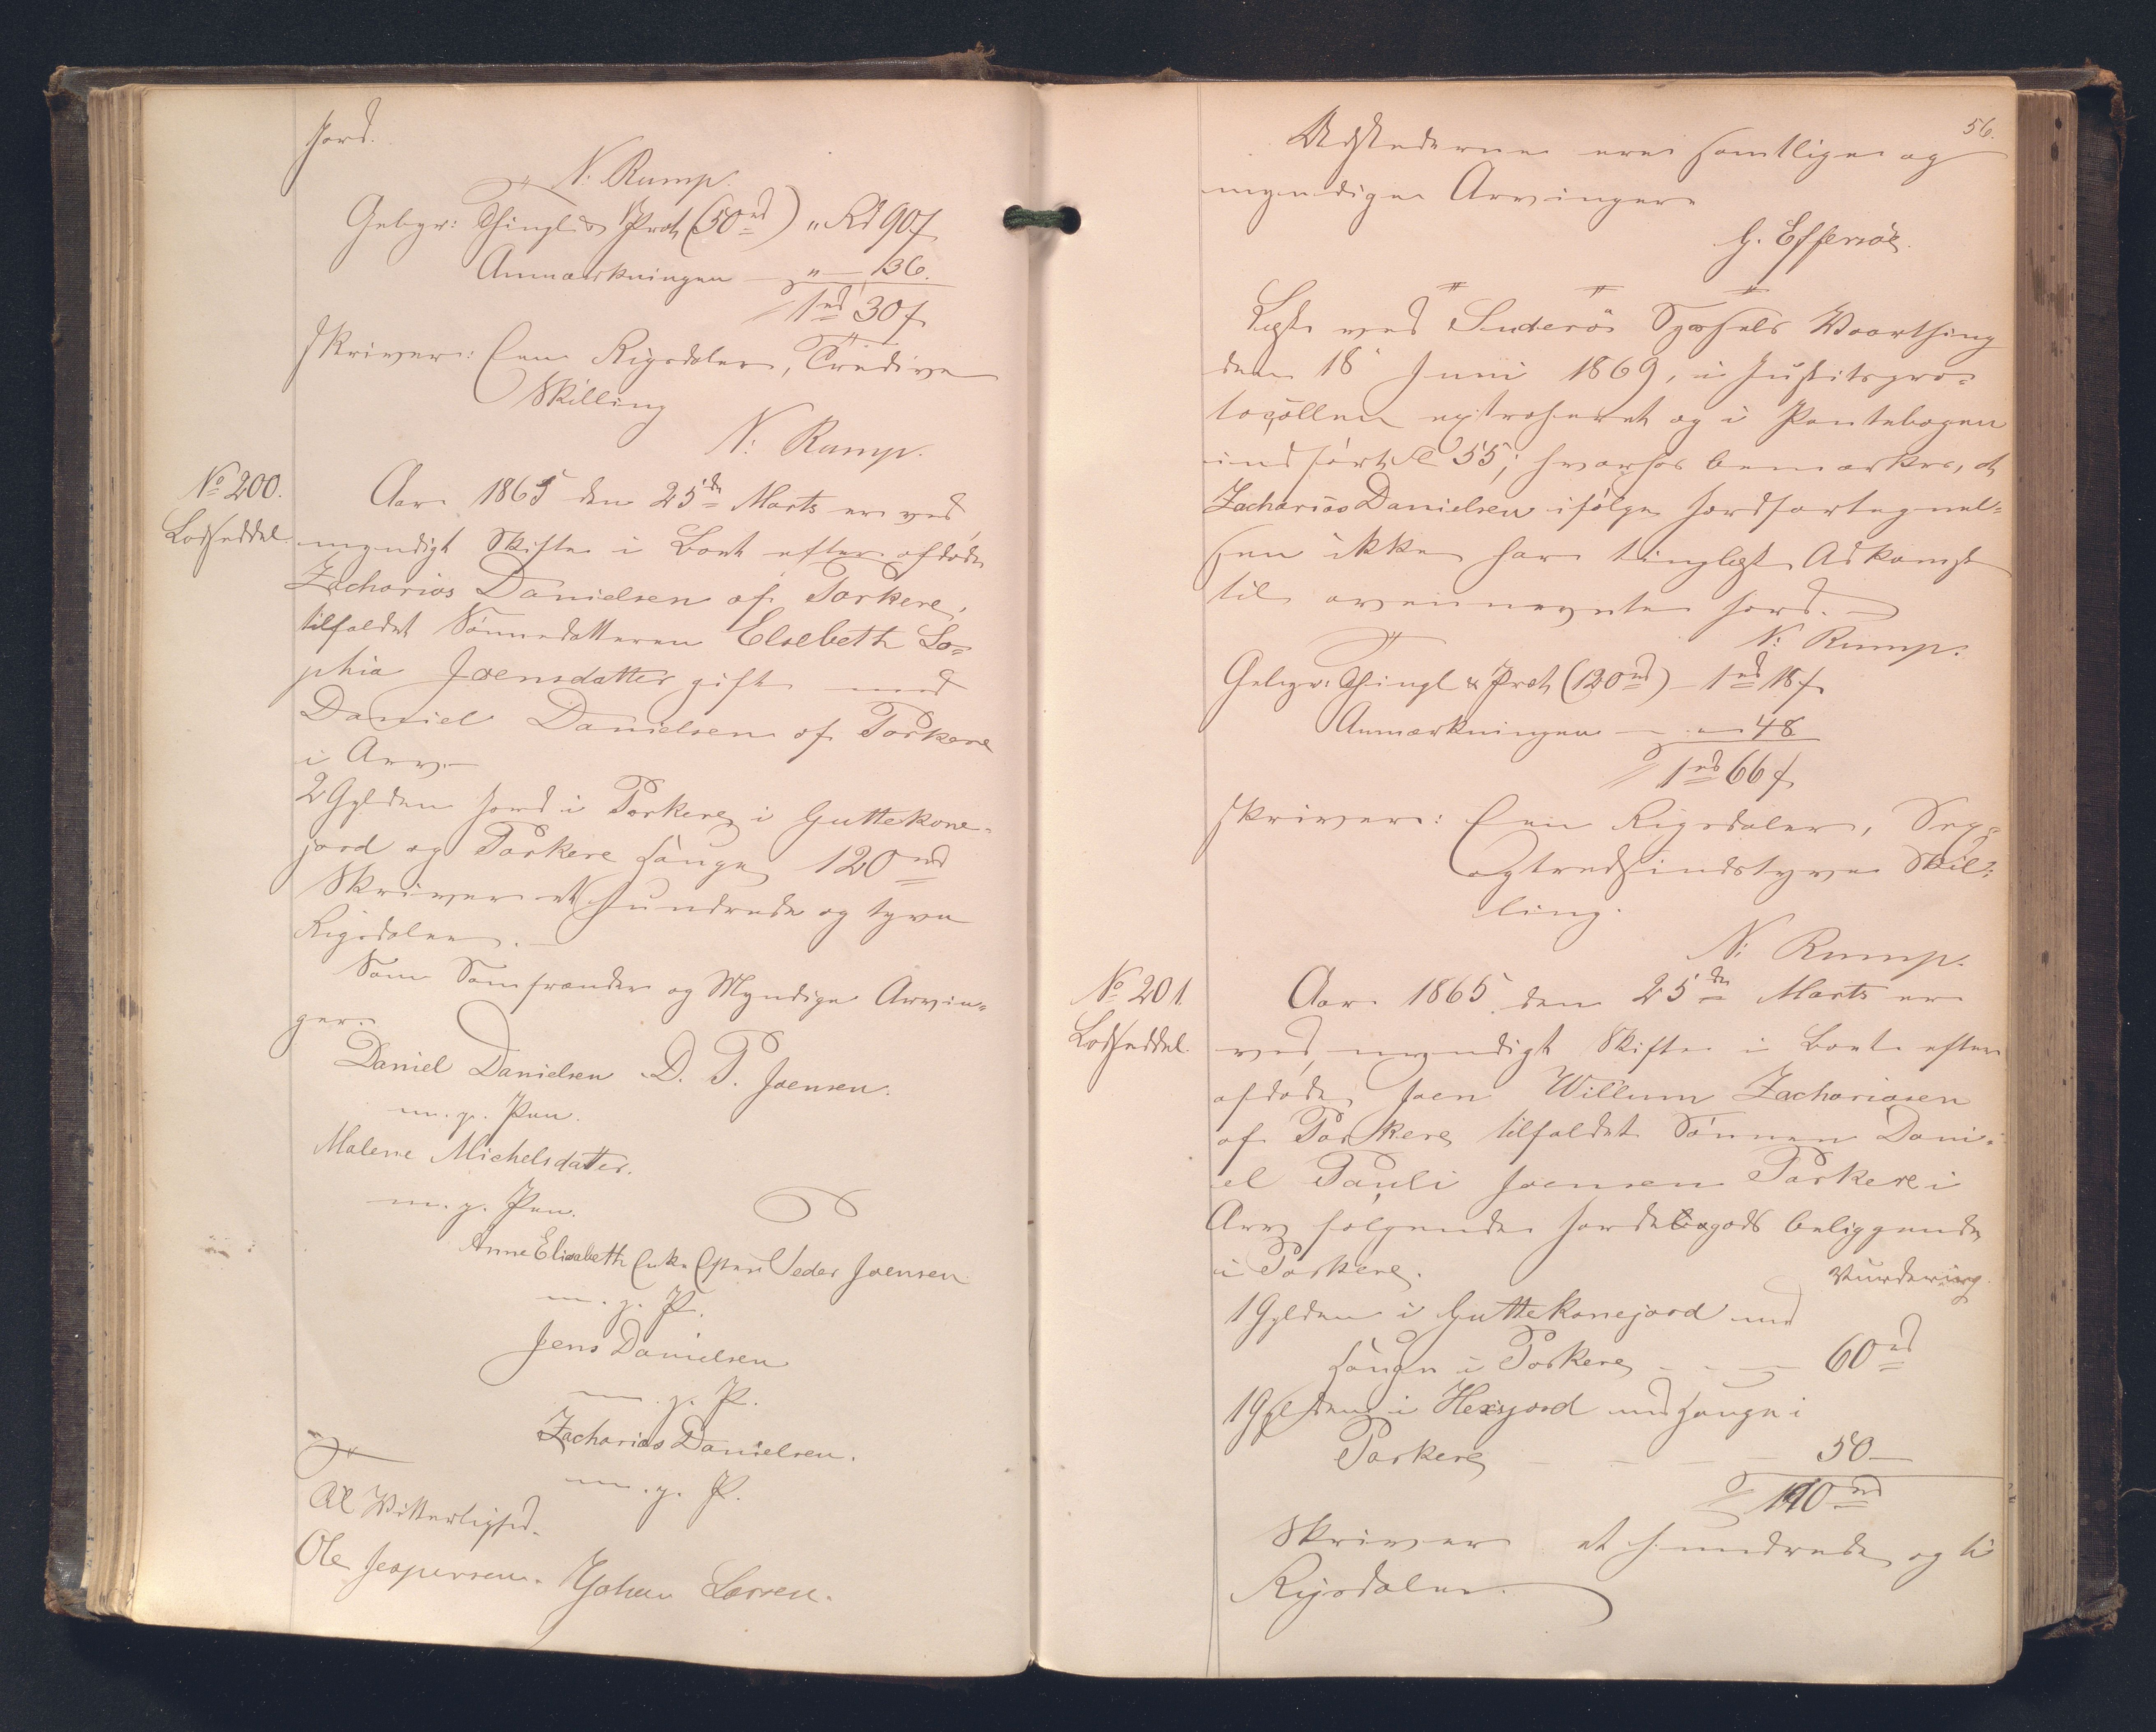 Jord.
N. Rump.
Gebyr: Thingl & Prot (50rd) " Rd 90 f
Anmærkningen — " — 36.
1rd 30 f
skriver: Een Rigsdaler, Tredive
Skilling
N: Rump.
No 200.
Lodseddel.
Aar 1865 den 25de Marts er ved
myndigt Skifte i Boet efter afdøde
Zacharias Danielsen af Porkere,
tilfaldet Sönnedatteren Elsebeth So-
phia Joensdatter gift med
Daniel Danielsen af Porkere
i Arv.
2 Gylden Jord i Porkere i Guttekone-
jord og Porkere Hauge 120rd
Skriver et Hundrede og tyve
Rigsdaler.
Som Samfrænder og Myndige Arvin-
ger.
Daniel Danielsen D. P. Joensen.
m. p. Pen.
Malene Michelsdatter.
m. p. Pen.
Anne Elisabeth Enke Efter Peder Joensen
m. p. P.
Jens Danielsen
m. p. P.
Zacharias Danielsen.
m. p. P.
Til Vitterlighed.
Ole Jespersen. Johan Larsen.
56.
Udstederne ere samtlige og
myndige Arvinger
G. Effersöe.
Læst ved Suderö Syssels Vaarthing
den 18 Juni 1869, i Justitspro-
tocollen extraheret og i Pantebogen
indført Fol 55; hvorhos bemærkes, at
Zacharias Danielsen ifölge Jordfortegnel-
sen ikke har tinglæst Adkomst
til ovennævnte Jord.
N: Rump.
Gebyr: Thingl & Prot (120rd) — 1rd 18 f
Anmærkningen — " — 48
1rd 66 f
skriver: Een Rigsdaler, Sex
ogtredsindstyve Skil-
ling.
N: Rump.
No 201
Lodseddel.
Aar 1865 den 25de Marts er
ved myndigt Skifte i Boet efter
afdøde Joen Willum Zachariasen
af Porkere tilfaldet Sönnen Dani-
el Pauli Joensen Porkere i
Arv følgende Jordegods beliggende
i Porkere.
Vurdering.
1 Gylden i Guttekonejord med
Hauge i Porkere — — — 60rd
1 Gylden i Hexisjord med Hauge i
Porkere — — — 50 —
110rd
Skriver et Hundrede og ti
Rigsdaler.